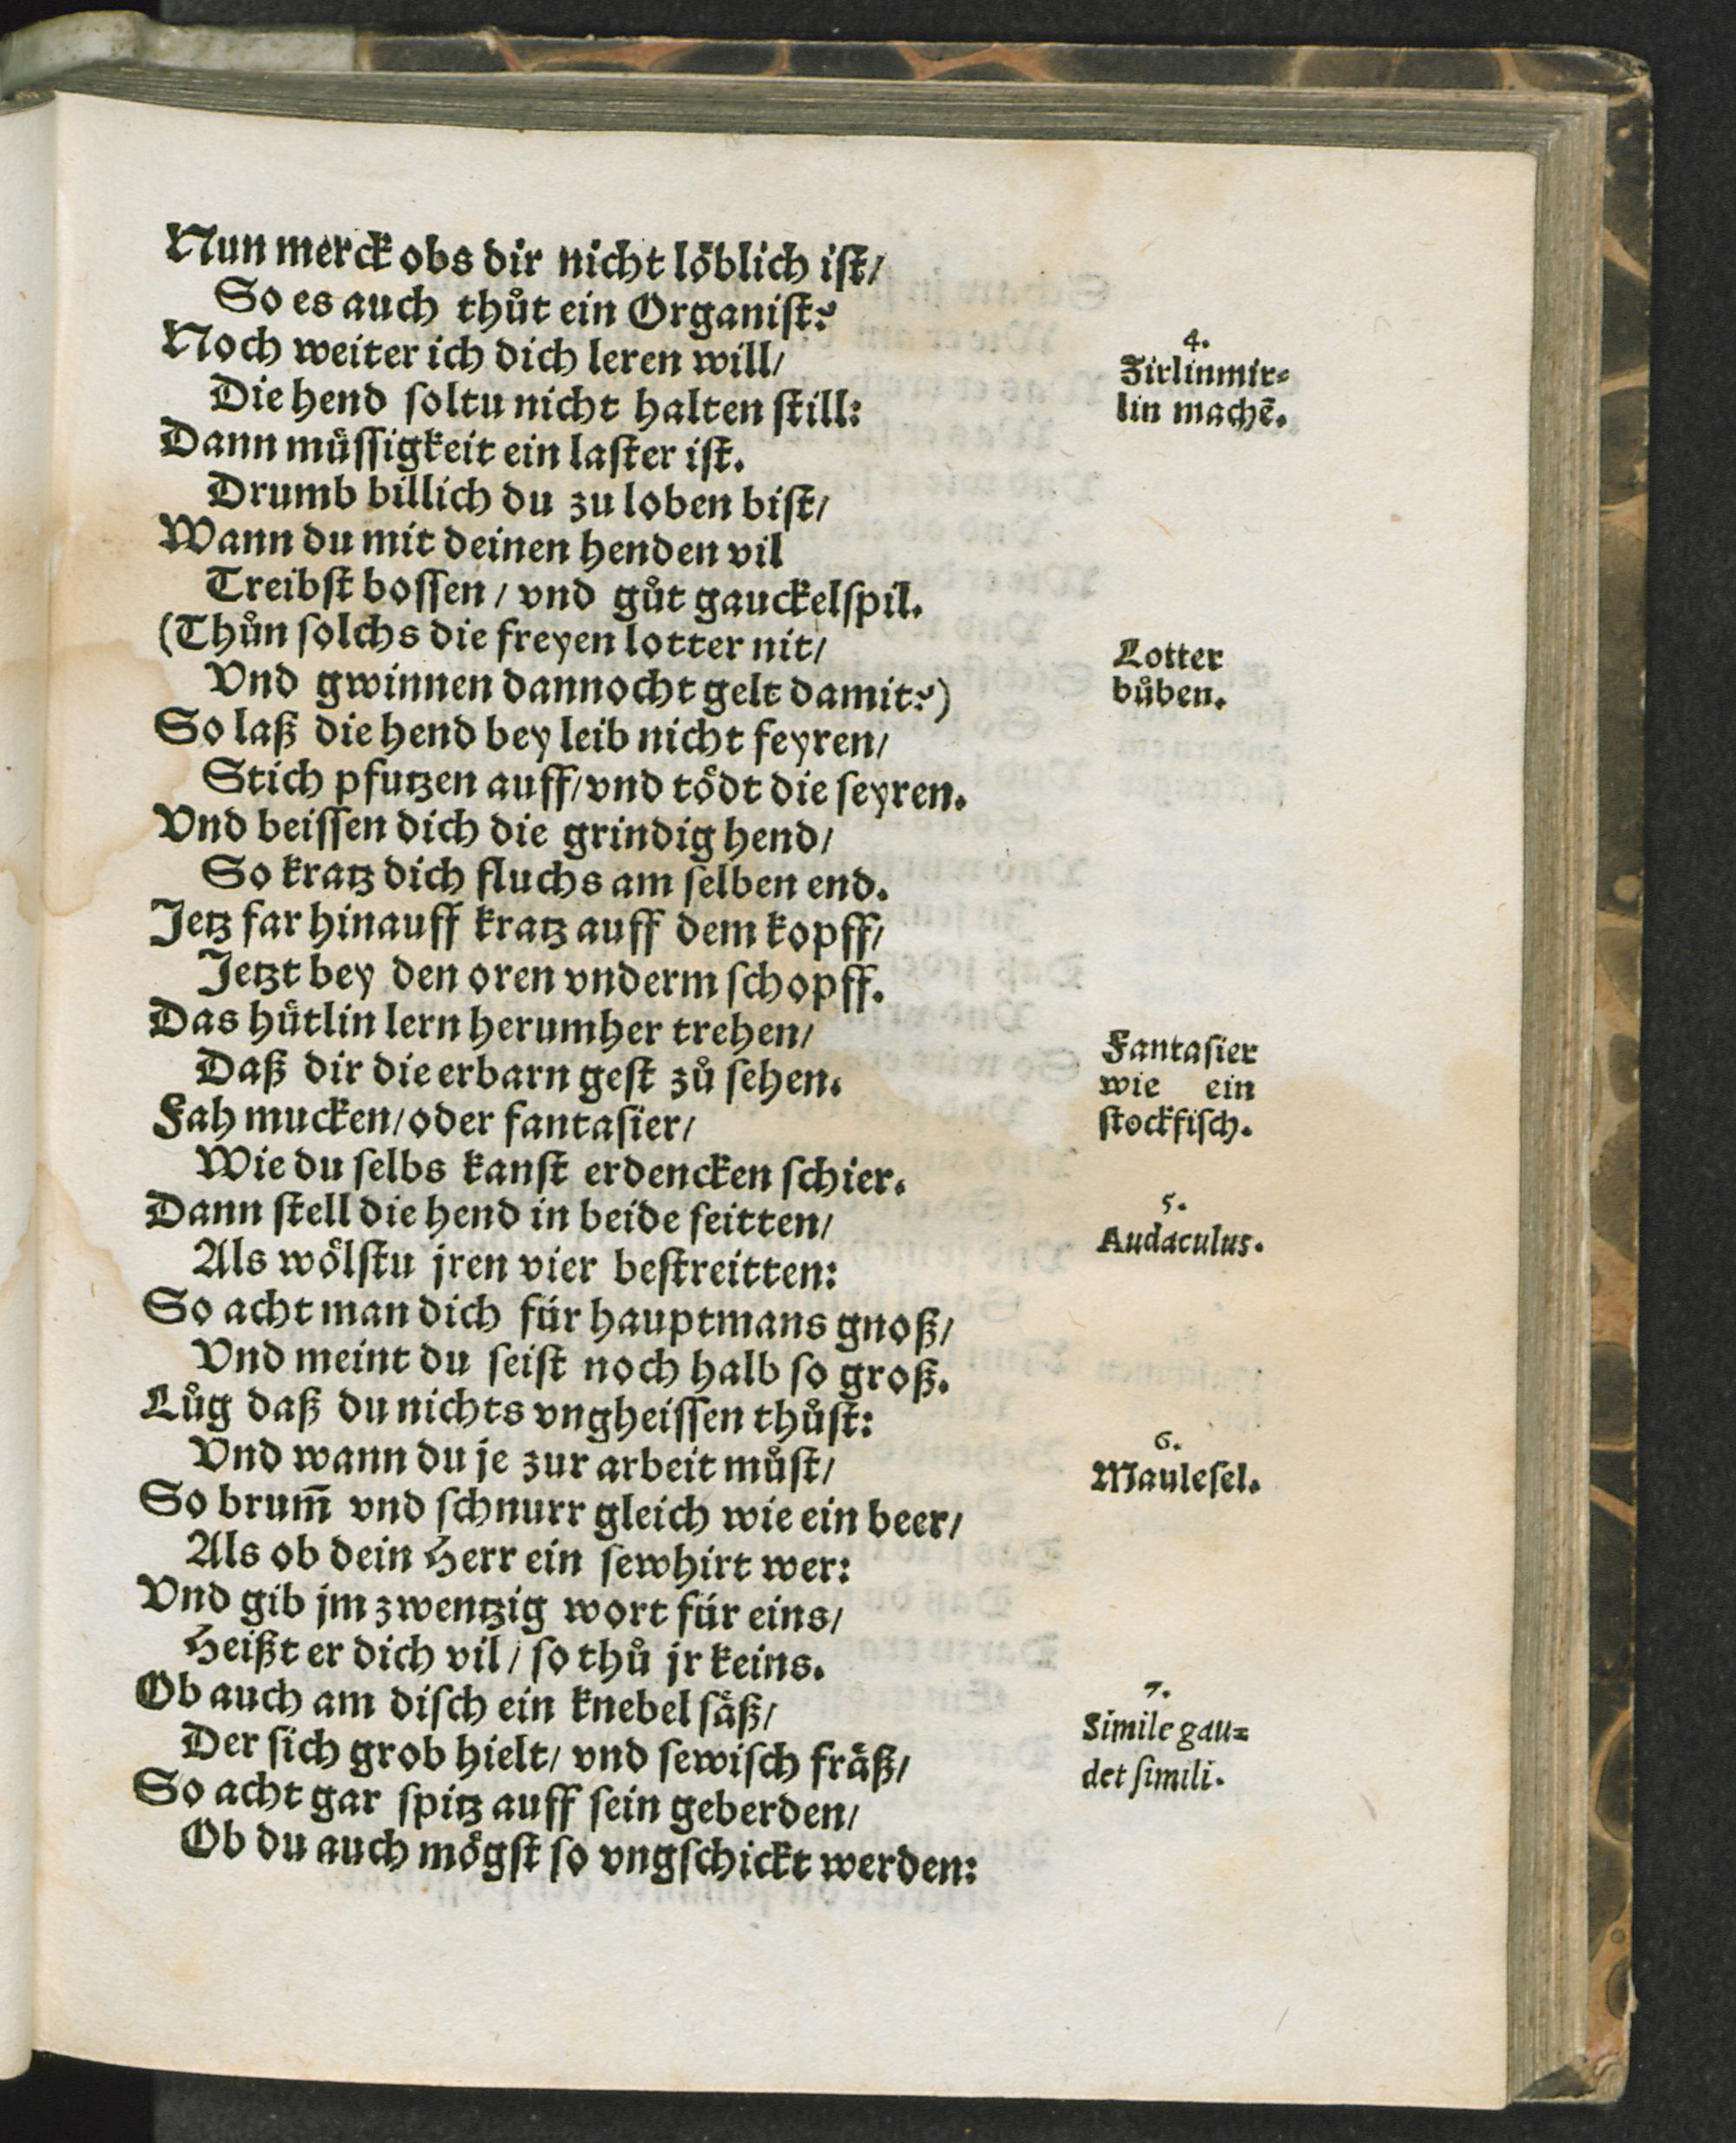 Nun merck obs dir nicht löblich iſt/
So es auch thůt ein Organiſt?
Noch weiter ich dich leren will/
Die hend ſoltu nicht halten ſtill:
Dann müſſigkeit ein laſter iſt.
Drumb billich du zu loben biſt/
Wann du mit deinen henden vil
Treibſt boſſen / vnd gůt gauckelſpil.
(Thůn ſolchs die freyen lotter nit/
Vnd gwinnen dannocht gelt damit?)
So laß die hend bey leib nicht feyren/
Stich pfutzen auff/ vnd tödt die ſeyren.
Vnd beiſſen dich die grindig hend/
So kratz dich fluchs am ſelben end.
Jetz far hinauff kratz auff dem kopff/
Jetzt bey den oren vnderm ſchopff.
Das hütlin lern herumher trehen/
Daß dir die erbarn geſt zů ſehen.
Fah mucken/ oder fantaſier/
Wie du ſelbs kanſt erdencken ſchier.
Dann ſtell die hend in beide ſeitten/
Als wölſtu jren vier beſtreitten:
So acht man dich für hauptmans gnoß/
Vnd meint du ſeiſt noch halb ſo groß.
Lůg daß du nichts vngheiſſen thůſt:
Vnd wann du je zur arbeit můſt/
So brum̃ vnd ſchnurr gleich wie ein beer/
Als ob dein Herr ein ſewhirt wer:
Vnd gib jm zwentzig wort für eins/
Heißt er dich vil / ſo thů jr keins.
Ob auch am diſch ein knebel ſäß/
Der ſich grob hielt/ vnd ſewiſch fräß/
So acht gar ſpitz auff ſein geberden/
Ob du auch mögſt ſo vngſchickt werden:
4.
Zirlinmir⸗
lin machē.
Lotter
bůben.
Fantaſier
wie ein
ſtockfiſch.
5.
Audaculus.
6.
Mauleſel.
7.
Simile gau⸗
det ſimili.